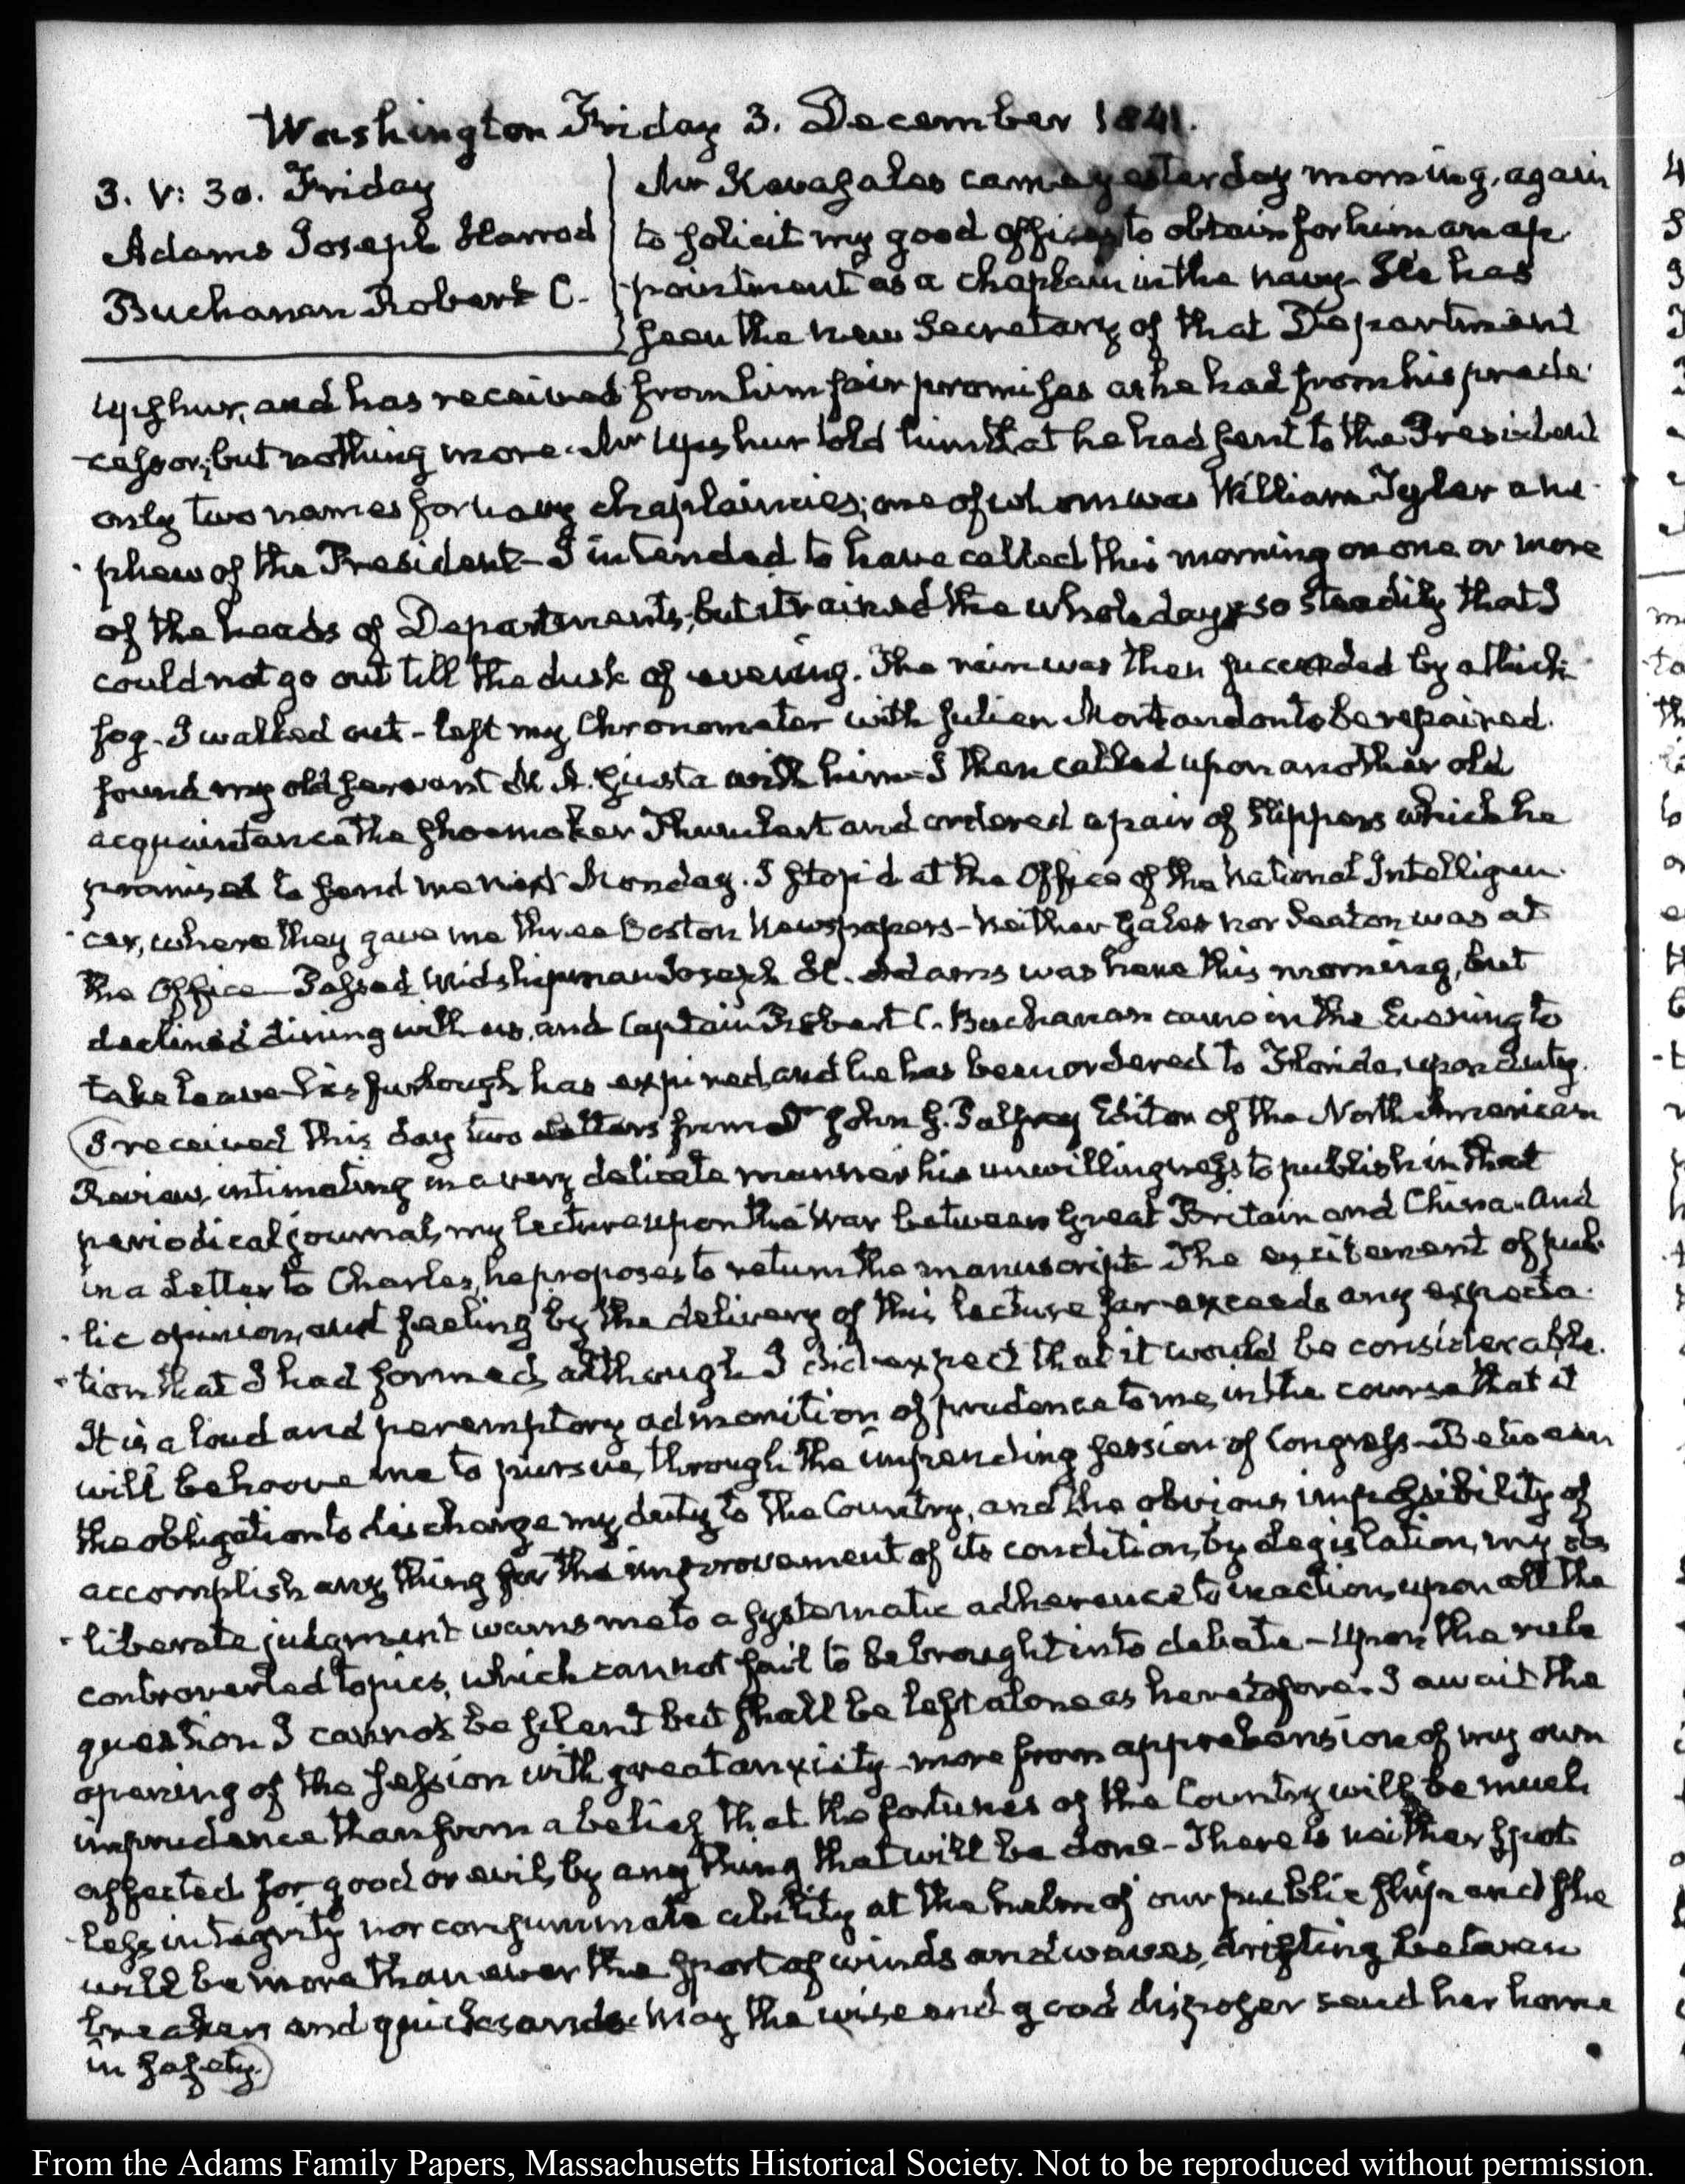 Washington Friday 3. December 1841.
3. V: 30. Friday
Adams Joseph Harrod
Buchanan Robert C.
Mr came yesterday morning, again
to solicit my good offices to obtain for him an ap-
-pointment as a chaplain in the navy. He has
seen the new Secretary of that Department
Upshur, and has received from him fair promises as he had from his prede-
cessor; but nothing more. Mr Upshur told him that he had sent to the President
only two names for navy chaplaincies; one of whom was William Tyler a ne-
-phew of the President— I intended to have called this morning on one or more
of the heads of Departments, but it rained the whole day so steadily that I
could not go out till the dusk of evening. The rain was then succeeded by a thick
fog. I walked out— left my Chronometer with Julien to be repaired.
found my old servant M. A. Giusta with him— I then called upon another old
acquaintance the shoemaker and ordered a pair of slippers which he
promised to send me next Monday. I stop'd at the Office of the National Intelligen-
-cer, where they gave me three Boston Newspapers— Neither Gales nor Seaton was at
the Office— Passed Midshipman Joseph H. Adams was here this morning, but
declined dining with us, and Captain Robert C. Buchanan came in the Evening to
take leave— his furlough has expired, and he has been ordered to Florida, upon duty.
I received this day two letters from Dr John G. Palfrey Editor of the North American
Review, intimating in a very delicate manner his unwillingness to publish in that
periodical journal, my lecture upon the War between Great Britain and China. And
in a Letter to Charles, he proposes to return the manuscript. The excitement of pub-
-lic opinion, and feeling by the delivery of this lecture far exceeds any expecta-
-tion that I had formed, although I did expect that it would be considerable.
It is a loud and peremptory admonition of prudence to me, in the course that it
will behoove me to pursue, through the impending session of Congress— Between
the obligation to discharge my duty to the Country, and the obvious impossibility of
accomplish any thing for the improvement of its condition, by legislation, my de-
-liberate judgment warns me to a systematic adherence to inaction, upon all the
controverted topics, which cannot fail to be brought into debate— Upon the rule
question I cannot be silent but shall be left alone as heretofore. I await the
opening of the session with great anxiety— more from apprehension of my own
imprudence than from a belief that the fortunes of the Country will be much
affected for good or evil, by any thing that will be done— There is neither spot-
-less integrity nor consummate ability at the helm of our public ship and she
will be more than ever the sport of winds and waves, drifting between
breakers and quicksands— May the wise and good disposer send her home
in safety.
From the Adams Family Papers, Massachusetts Historical Society. Not to be reproduced without permission.